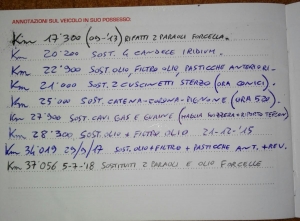 ANNOTAZIONI SUL VEICOLO IN SUO POSSESSO
Km 17'300 (09-'13) RIFATTI 2 PARAOLI FORCELLA.
Km 20'200 SOST. 4 CANDELE IRIDIUM.
Km 22'900 SOST. OLIO, FILTRO OLIO, PASTICCHE ANTERIORI.
Km 21'000 SOST. 2 CUSCINETTI STERZO (ORA CONICI).
Km 25'000 SOST. CATENA-CORONA-PIGNONE (ORA 520).
Km 27'300 SOST. CAVI GAS E GUAINE
Km 28'300 SOST. OLIO + FILTRO OLIO 21-12-'15
Km 34'019 29/9/17 SOST. OLIO+FILTRO + PASTICCHE ANT. + REV.
Km 37'056 5-7-'18 SOSTITUITI 2 PARAOLI E OLIO FORCELLE.